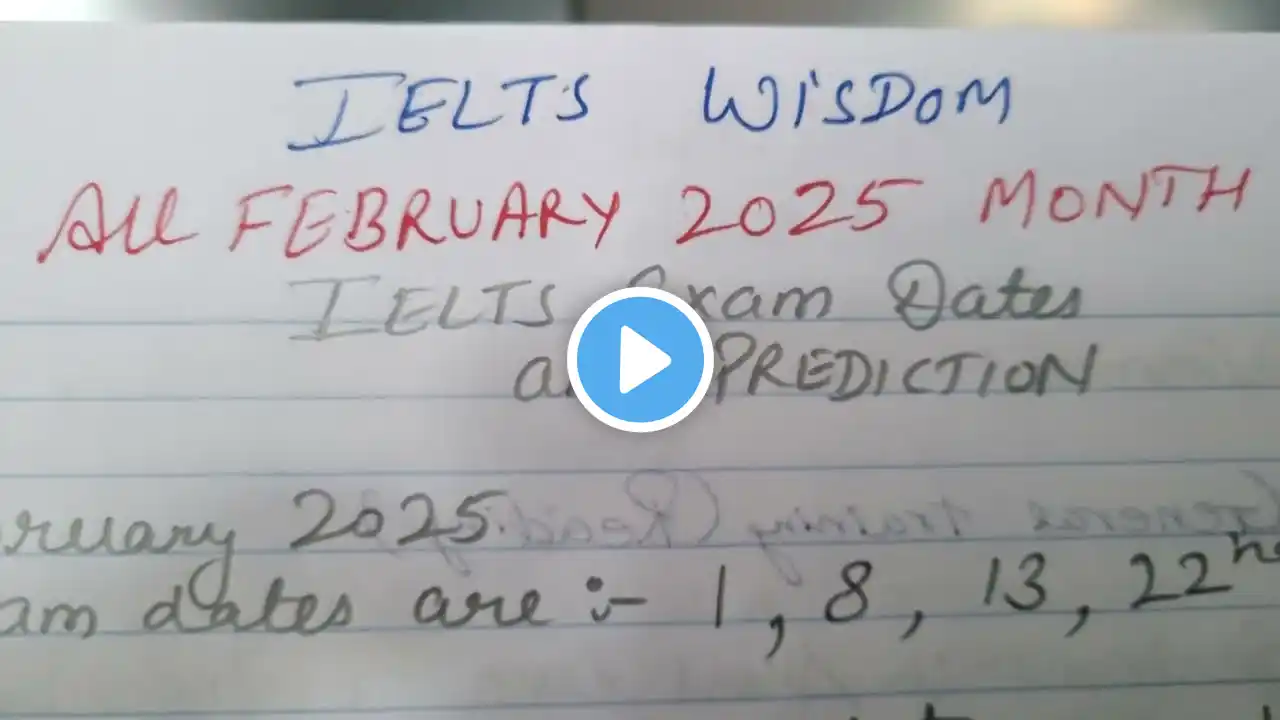 IELTS WISDOM
All FEBRUARY 2025 MONTH
IELTS Exam Dates
PREDICTION
ruary 2025
am dates are :- 1, 8, 13, 22